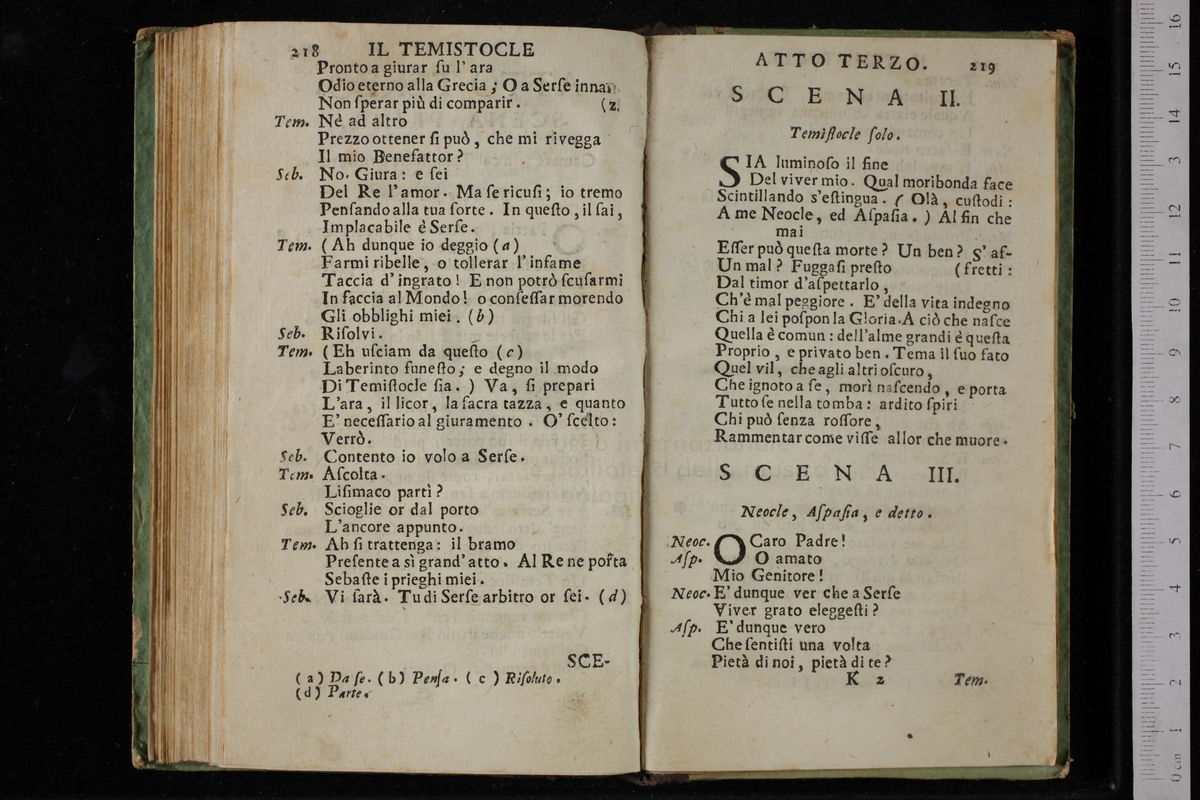 218 IL TEMISTOCLE
Pronto a giurar ſu l' ara
Odio eterno alla Grecia ; O a Serſe innan
Non ſperar più di comparir . (z.
Tem. Nè ad altro
Prezzo ottener ſi può , che mi rivegga
Il mio Benefattor ?
Seb. No. Giura : e ſei
Del Re l'amor. Ma ſe ricuſi ; io tremo
Penſando alla tua ſorte . In queſto , il ſai ,
Implacabile è Serſe.
Tem. ( Ah dunque io deggio (a)
Farmi ribelle, o tollerar l'infame
Taccia d' ingrato ! E non potrò ſcuſarmi
In faccia al Mondo ! o conſeſſar morendo
Gli obblighi miei . (b)
Seb. Riſolvi.
Tem. (Eh uſciam da queſto (c)
Laberinto funeſto; e degno il modo
Di Temiſtocle ſia. ) Va, ſi prepari
L'ara , il licor, la ſacra tazza , e quanto
E' neceſſario al giuramento . O' ſcelto :
Verrò.
Seb. Contento io volo a Serſe.
Tem. Aſcolta.
Liſimaco partì ?
Seb. Scioglie or dal porto
L'ancore appunto.
Tem. Ah ſi trattenga : il bramo
Preſente a sì grand' atto . Al Re ne porta
Sebaſte i prieghi miei .
Seb. Vi ſarà. Tu di Serſe arbitro or ſei. (d)
SCE-
(a) Da ſe. (b) Penſa. (c) Riſoluto.
(d) Parte.
ATTO TERZO. 219
SCENA II.
Temiſtocle ſolo.
SIA luminoſo il fine
Del viver mio. Qual moribonda face
Scintillando s'eſtingua. ( Olà, cuſtodi :
A me Neocle, ed Aſpaſia. ) Al fin che
mai
Eſſer può queſta morte ? Un ben ? S' af-
Un mal ? Fuggaſi preſto (fretti :
Dal timor d'aſpettarlo ,
Ch'è mal peggiore . E' della vita indegno
Chi a lei poſpon la Gloria. A ciò che naſce
Quella è comun : dell'alme grandi è queſta
Proprio , e privato ben . Tema il ſuo fato
Quel vil, che agli altri oſcuro ,
Che ignoto a ſe, morì naſcendo , e porta
Tutto ſe nella tomba : ardito ſpiri
Chi può ſenza roſſore,
Rammentar come viſſe allor che muore.
SCENA III.
Neocle, Aſpaſia, e detto.
Neoc. O Caro Padre !
Aſp. O amato
Mio Genitore !
Neoc. E' dunque ver che a Serſe
Viver grato eleggeſti ?
Aſp. E' dunque vero
Che ſentiſti una volta
Pietà di noi , pietà di te ?
K 2 Tem.